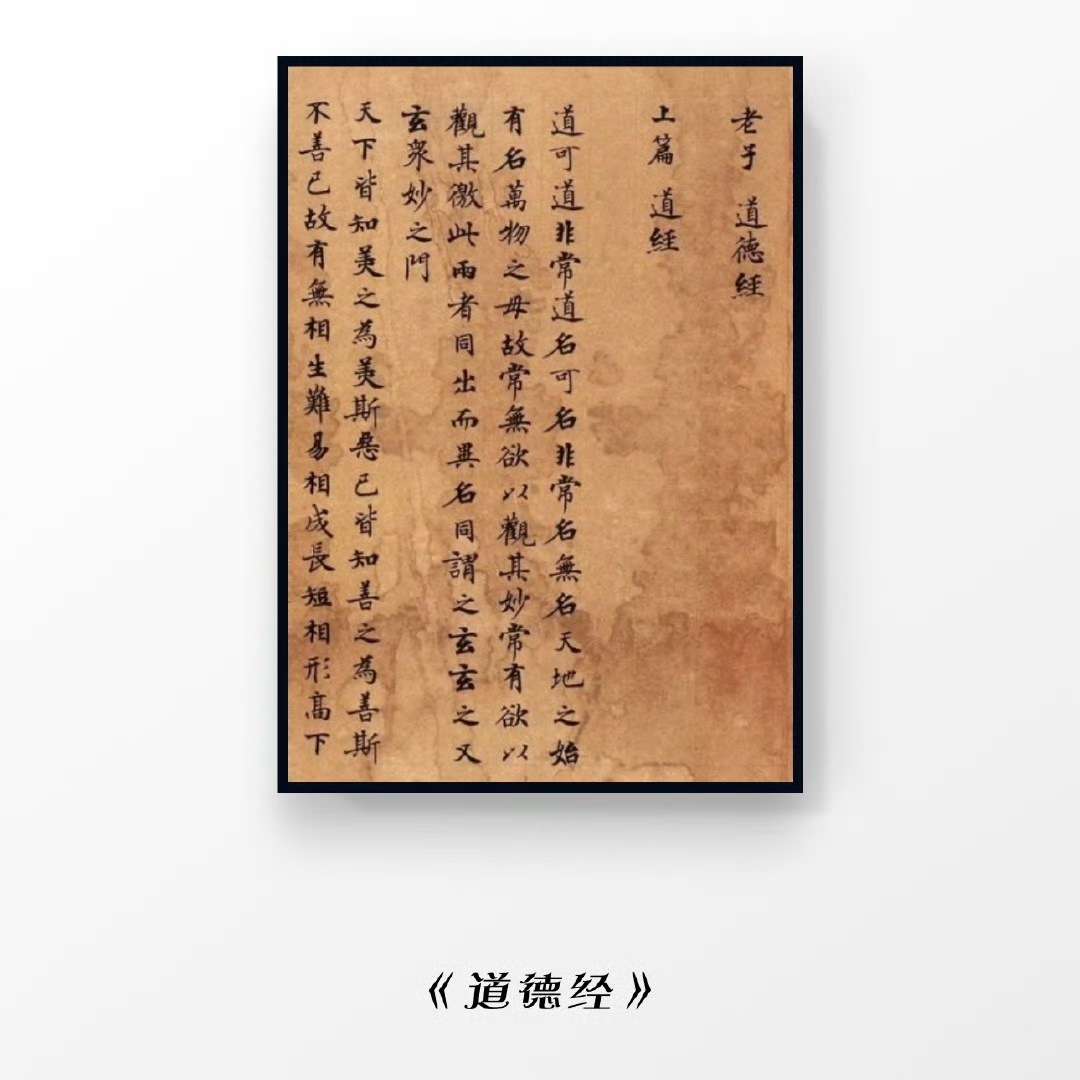 老子 道德經
上篇 道經
道可道非常道名可名非常名無名天地之始
有名萬物之母故常無欲以觀其妙常有欲以
觀其徼此兩者同出而異名同謂之玄玄之又
玄衆妙之門
天下皆知美之為美斯惡已皆知善之為善斯
不善已故有無相生難易相成長短相形高下
《道德经》